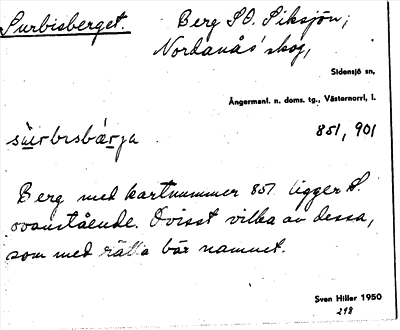 Surbisberget.
Berg SO. Siksjön;
Nordanås' skog,
Sidensjö sn,
Ångermanl. n. doms. tg., Västernorrl, l.
851, 901
Berg med kartnummer 851 ligger
ovanstående. Ovisst vilka av dessa,
som med rätta bär namnet.
Sven Hiller 1950
298